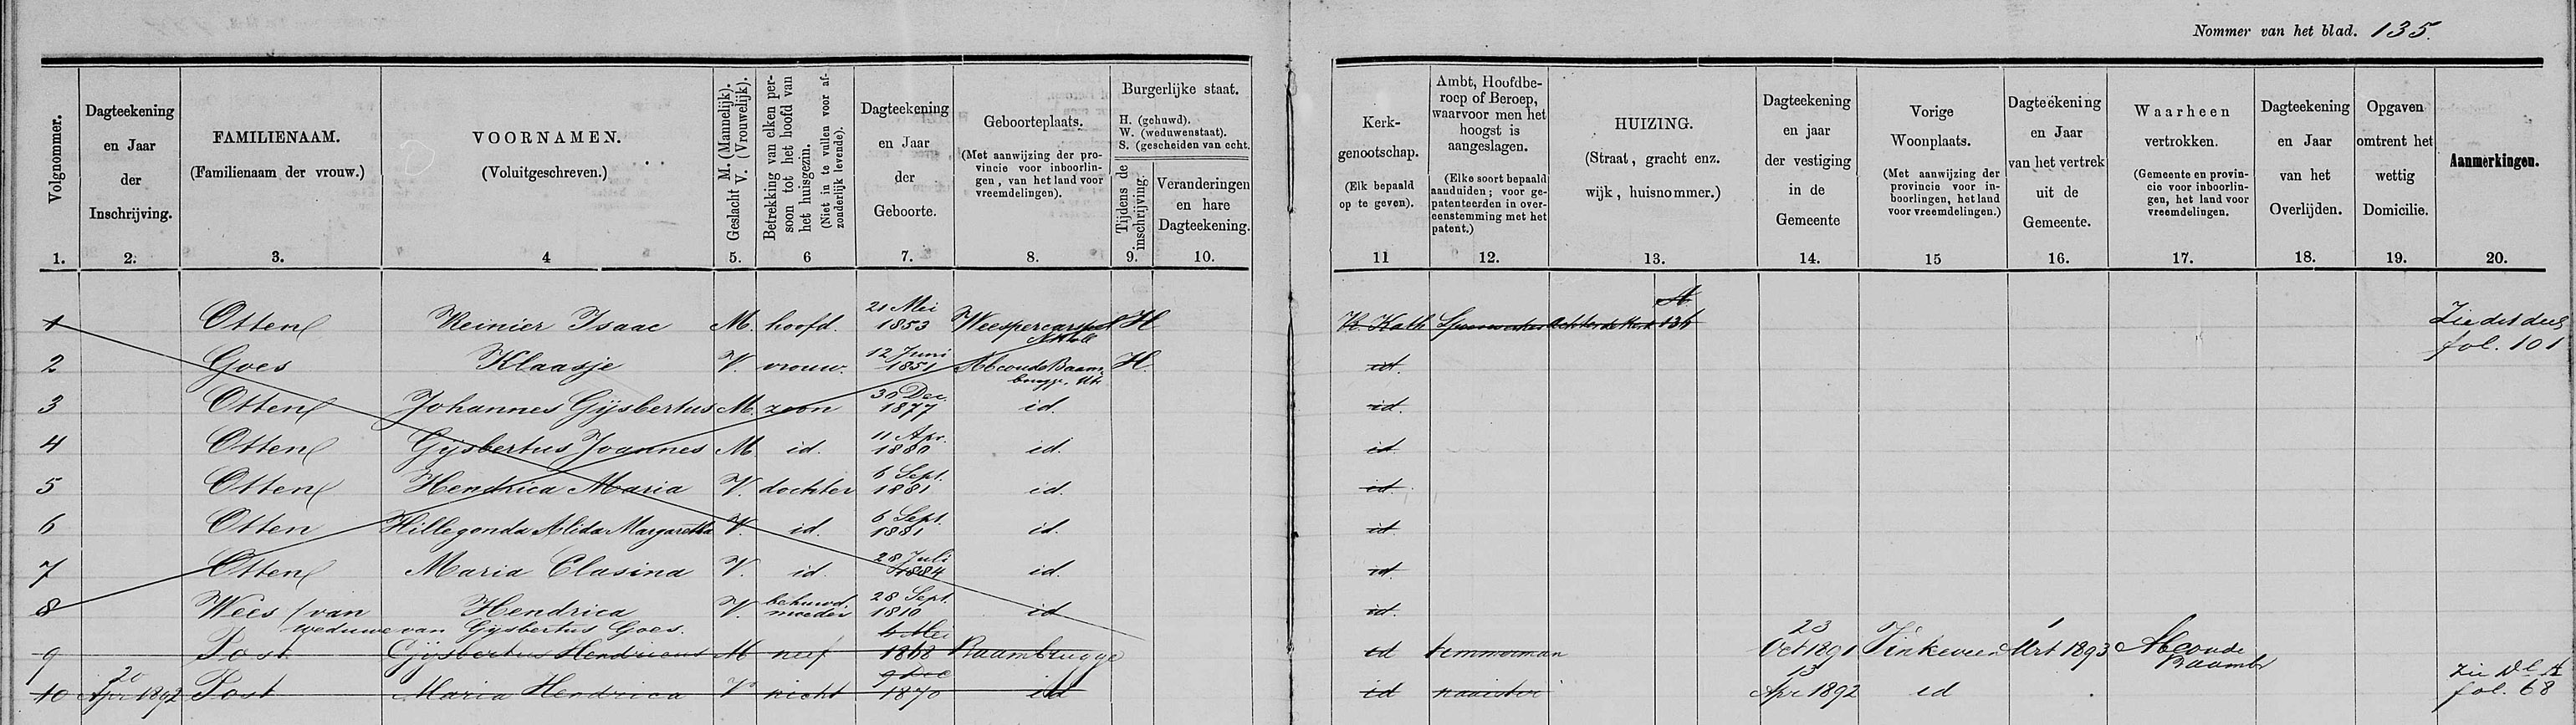 Nommer van het blad. 135.
Volgnommer.
Dagteekening
en Jaar
der
Inschrijving.
FAMILIENAAM.
(Familienaam der vrouw.)
VOORNAMEN.
(Voluitgeschreven.)
Geslacht M. (Mannelijk). V. (Vrouwelijk).
Betrekking van elken persoon tot het hoofd van het huisgezin.
(Niet in te vullen voor afzonderlijk levende).
Dagteekening
en Jaar
der
Geboorte.
Geboorteplaats.
(Met aanwijzing der pro-
vincie voor inboorlin-
gen, van het land voor
vreemdelingen).
Burgerlijke staat.
H. (gehuwd).
W. (weduwenstaat).
S. (gescheiden van echt.
Tijdens de inschrijving.
Veranderingen
en hare
Dagteekening.
Kerk-
genootschap.
(Elk bepaald
op te geven).
Ambt, Hoofdbe-
roep of Beroep,
waarvoor men het
hoogst is
aangeslagen.
(Elke soort bepaald
aanduiden; voor ge-
patenteerden in over-
eenstemming met het
patent.)
HUIZING.
(Straat, gracht enz.
wijk, huisnommer.)
Dagteekening
en jaar
der vestiging
in de
Gemeente
Vorige
Woonplaats.
(Met aanwijzing der
provincie voor in-
boorlingen, het land
voor vreemdelingen.)
Dagteekening
en Jaar
van het vertrek
uit de
Gemeente.
Waarheen
vertrokken.
(Gemeente en provin-
cie voor inboorlin-
gen, het land voor
vreemdelingen.
Dagteekening
en Jaar
van het
Overlijden.
Opgaven
omtrent het
wettig
Domicilie.
Aanmerkingen.
1. 2. 3. 4 5. 6 7. 8. 9. 10. 11 12. 13. 14. 15 16. 17. 18. 19. 20.
1 Otten Reinier Isaac M. hoofd. 21 Mei 1853 Weespercarspel H R. Kath Achter de Kerk A 136 Zie dit deel
fol. 101
2 Goes Klaasje V. vrouw. 12 Juni 1851 Abcoude Baam-
brugge. Utr. H. id.
3 Otten Johannes Gijsbertus M. zoon 30 Dec. 1877 id. id.
4 Otten Gijsbertus Joannes M id. 11 Apr. 1880 id. id
5 Otten Hendrica Maria V. dochter 6 Sept. 1881 id. id.
6 Otten Hillegonda Alida Margaretha V. id. 6 Sept. 1881 id. id
7 Otten Maria Clasina V. id. 28 Juli 1884 id. id.
8 Wees (van Hendrica V. behuwd moeder 28 Sept. 1810 id id.
weduwe van Gijsbertus Goes.
9 Post Gijsbertus Hendricus M neef 6 Mei 1868 Baambrugge id timmerman 23 Oct 1891 Vinkeveen 1 Mrt 1893 Abcoude
Baambr
10 20 Apr 1892 Post Maria Hendrica V nicht 9 Dec 1870 id id naaister 13 Apr 1892 id Zie Dl A
fol. 68